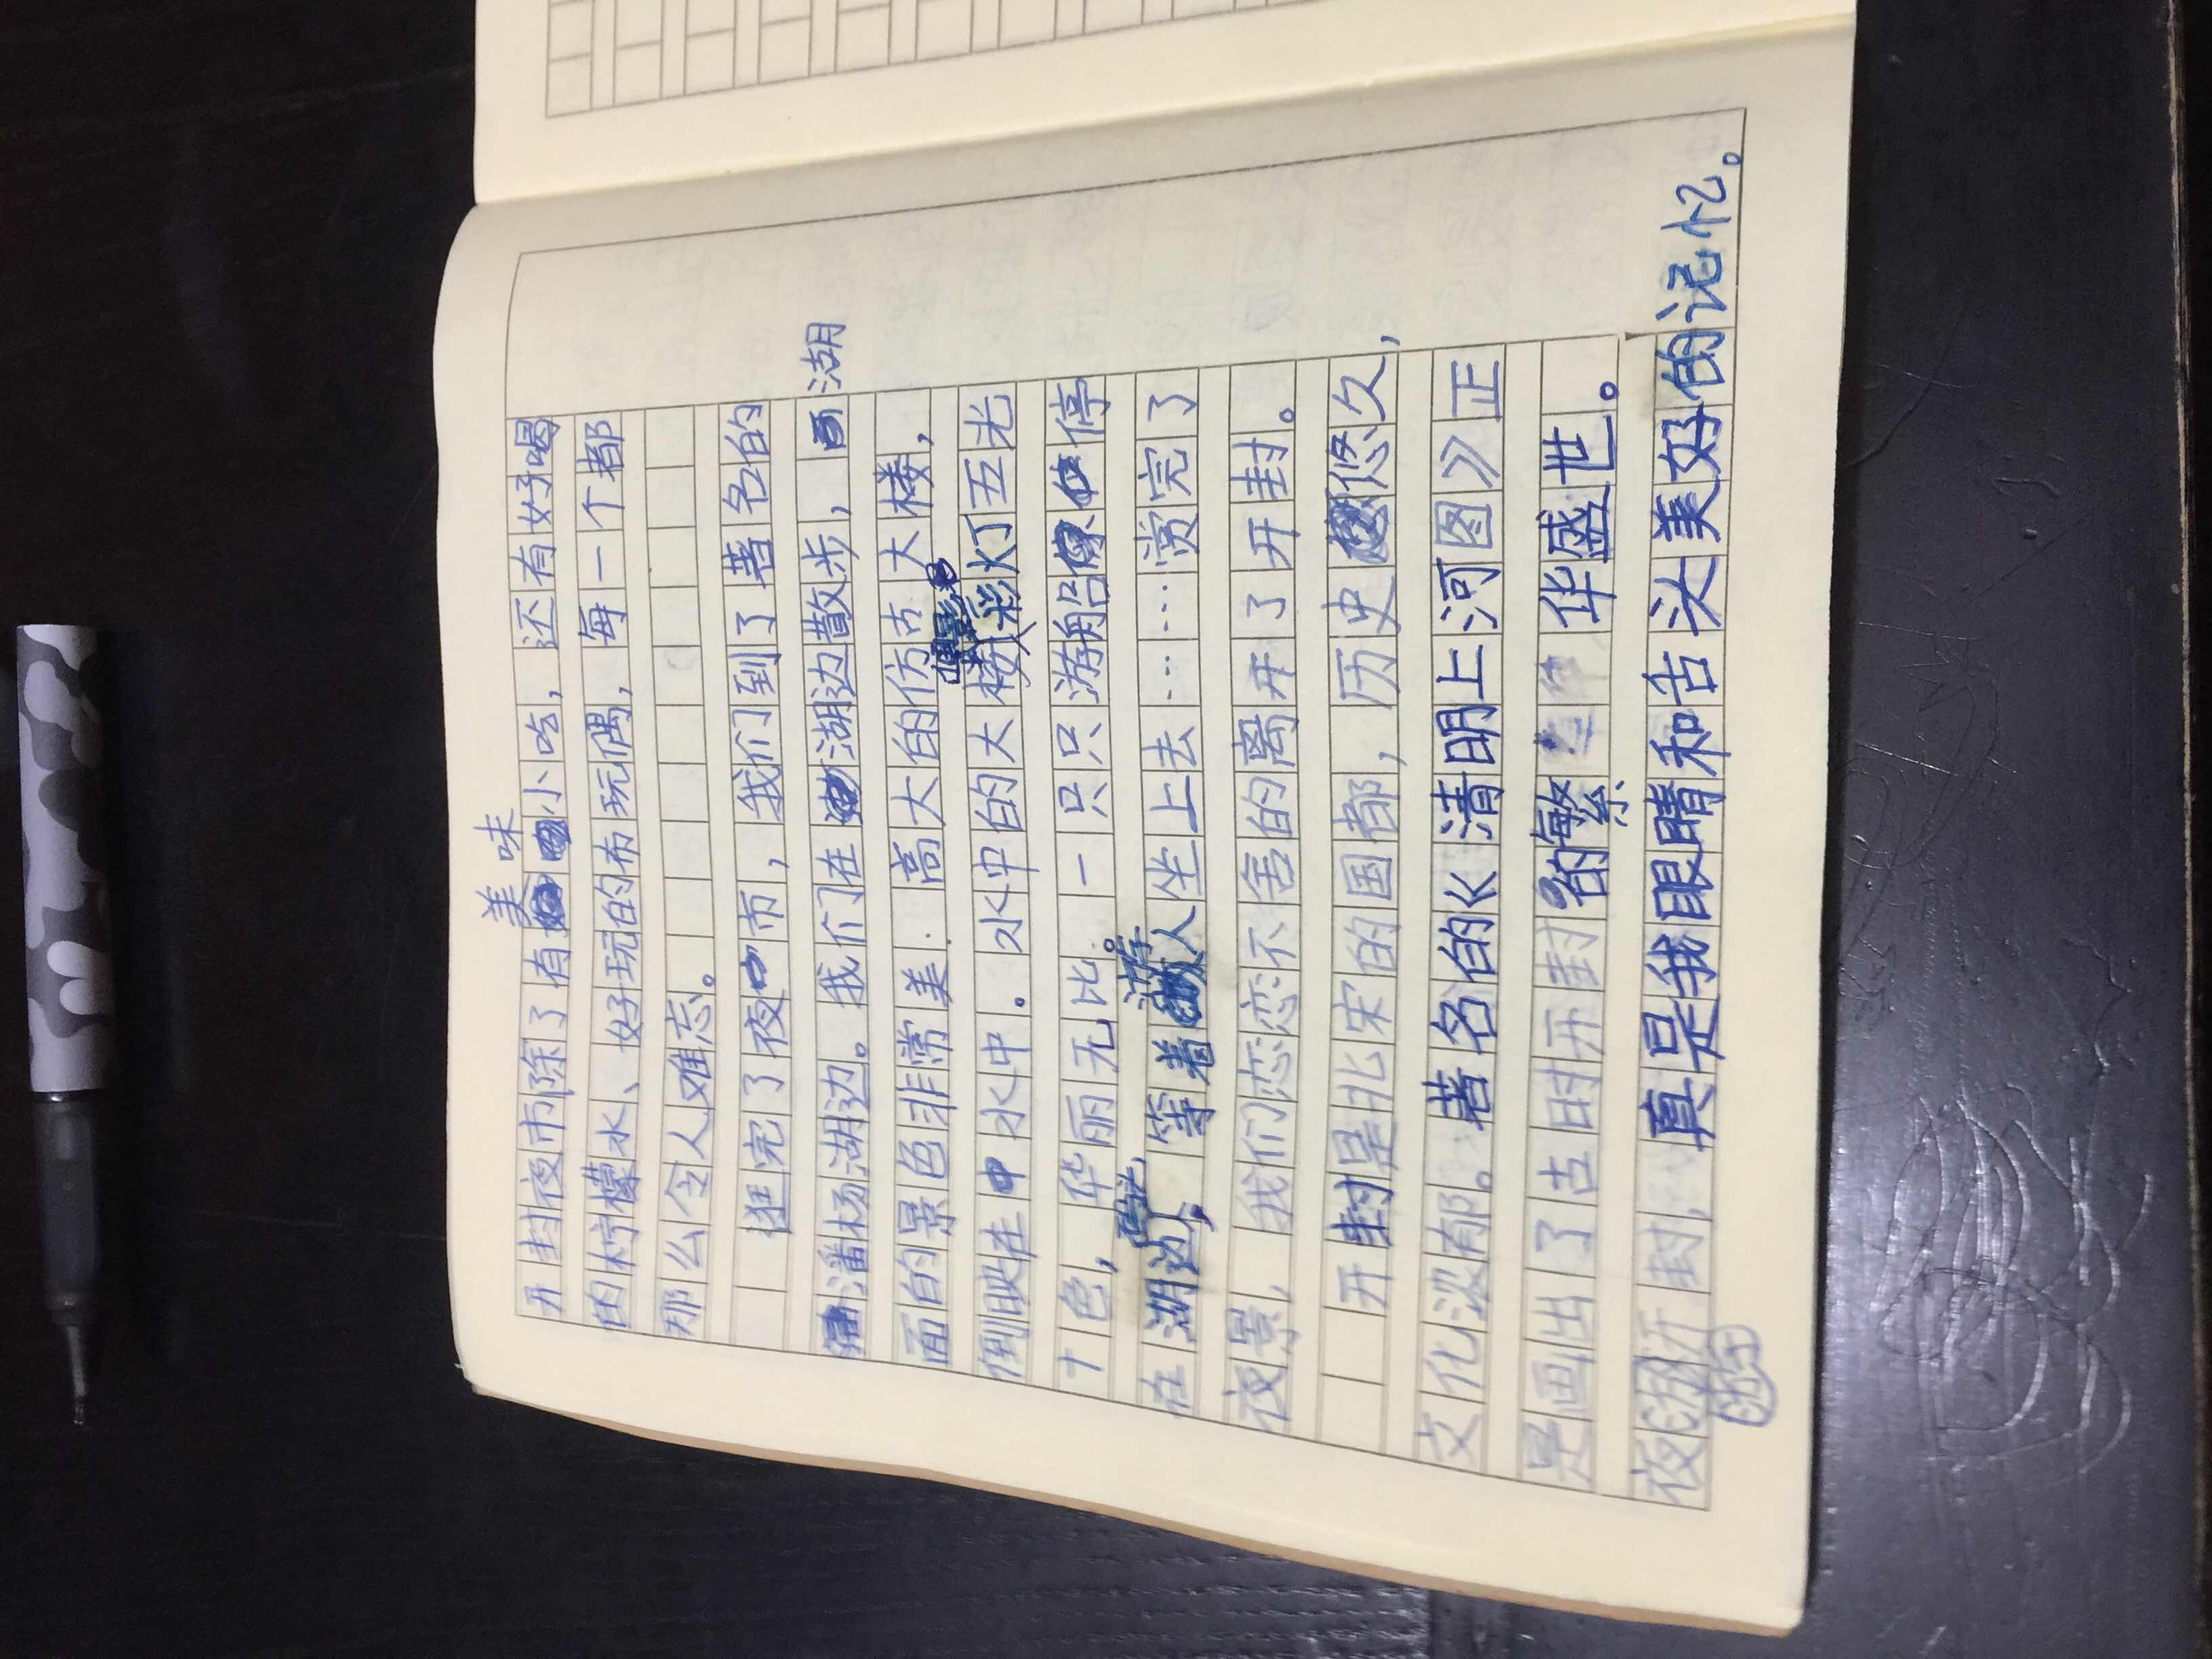 美味
开封夜市除了有小吃，还有好喝
的柠檬水、好玩的布玩偶，每一个都
那么令人难忘。
逛完了夜市，我们到了著名的
潘杨湖边。我们在湖边散步，湖
面的景色非常美．高大的仿古大楼，
倒映在水中。水中的大楼彩灯五光
十色，华丽无比．一只只游船停
在湖边，等着游人坐上去……赏完了
夜景，我们恋恋不舍的离开了开封。
开封是北宋的国都，历史悠久，
文化浓郁。著名的《清明上河图》正
是画出了古时开封的繁华盛世。
夜游开封，真是我眼睛和舌头美好的记忆。